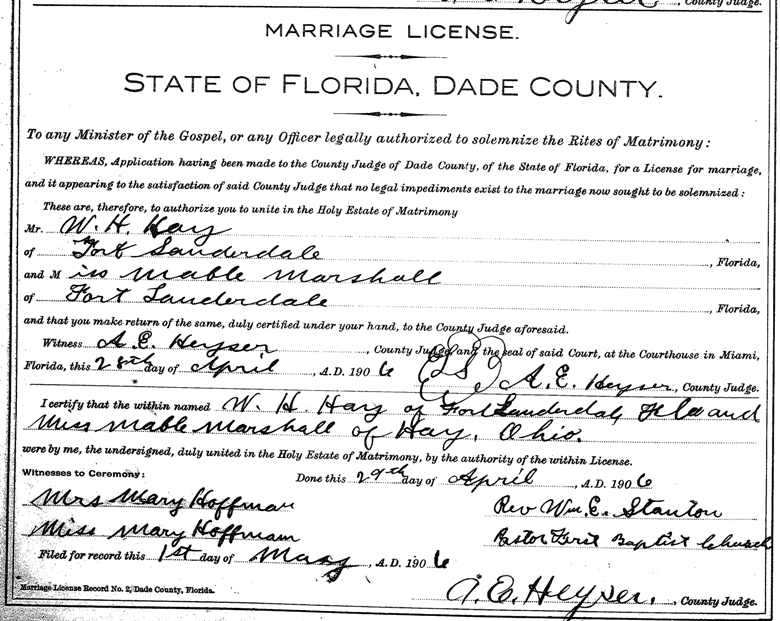 , County Judge.
MARRIAGE LICENSE.
STATE OF FLORIDA, DADE COUNTY.
To any Minister of the Gospel, or any Officer legally authorized to solemnize the Rites of Matrimony:
WHEREAS, Application having been made to the County Judge of Dade County, of the State of Florida, for a License for marriage,
and it appearing to the satisfaction of said County Judge that no legal impediments exist to the marriage now sought to be solemnized:
These are, therefore, to authorize you to unite in the Holy Estate of Matrimony
Mr. W. H. Kay
of Fort Lauderdale, Florida,
and Miss Mable Marshall
of Fort Lauderdale, Florida,
and that you make return of the same, duly certified under your hand, to the County Judge aforesaid.
Witness A. E. Heyser, County Judge and the seal of said Court, at the Courthouse in Miami,
Florida, this 28th day of April, A.D. 1906 LS A. E. Heyser, County Judge.
I certify that the within named W. H. Hay of Fort Lauderdale, Fla and
Miss Mable Marshall of Hay, Ohio.
were by me, the undersigned, duly united in the Holy Estate of Matrimony, by the authority of the within License.
Witnesses to Ceremony: Done this 29th day of April, A.D. 1906
Mrs Mary Hoffman Rev Wm. E. Stanton
Miss Mary Hoffman Pastor First Baptist Church
Filed for record this 1st day of May, A.D. 1906
Marriage License Record No. 2, Dade County, Florida. A. E. Heyser, County Judge.